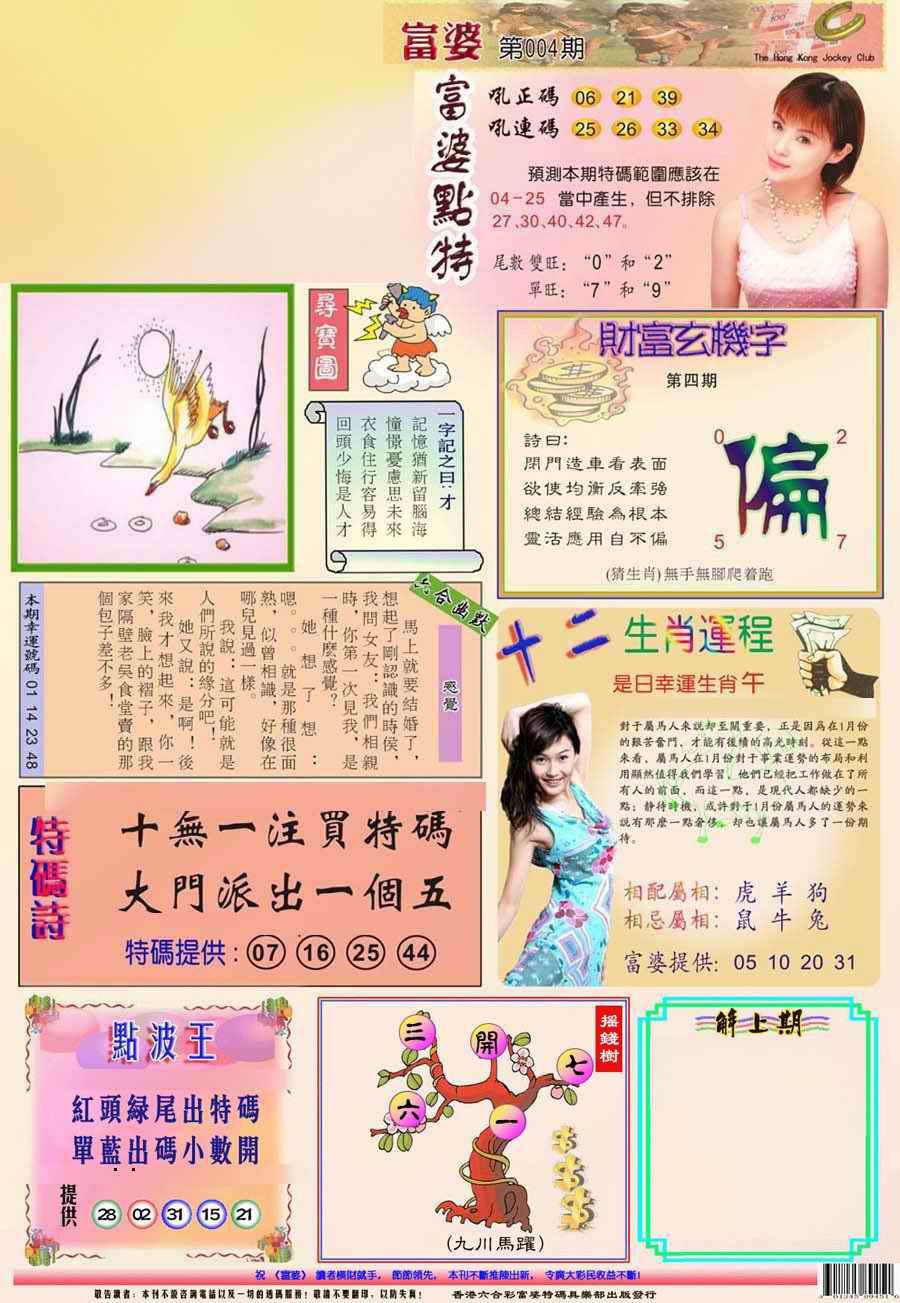 富婆 第004期
The Hong Kong Jockey Club
富婆點特
吼正碼 06 21 39
吼連碼 25 26 33 34
預測本期特碼範圍應該在
04-25 當中產生，但不排除
27、30、40、42、47。
尾數雙旺：“0”和“2”
單旺：“7”和“9”
尋寶圖
一字記之曰：才
記憶猶新留腦海
憧憬憂慮思未來
衣食住行容易得
回頭少悔是人才
財富玄機字
第四期
詩曰：
閉門造車看表面
欲使均衡反牽強
總結經驗為根本
靈活應用自不偏
偏
0 2
5 7
(猜生肖)無手無腳爬着跑
六合幽默
感覺
馬上就要結婚了，
想起了剛認識的時侯，
我問女友：我們相親
時，你第一次見我，是
一種什麽感覺？
她想了想：
嗯。。。就是那種很面
熟，似曾相識，好像在
哪兒見過一樣。
我説：這可能就是
人們所説的緣分吧！
她又説：是啊！後
來我才想起來，你一
笑，臉上的褶子，跟我
家隔壁老吳食堂賣的那
個包子差不多！
本期幸運號碼 01 14 23 48
十二生肖運程
是日幸運生肖午
對于屬馬人來説却至關重要，正是因爲在1月份
的艱苦奮鬥，才能有後續的高光時刻。從這一點
來看，屬馬人在1月份對于事業運勢的布局和利
用顯然值得我們學習，他們已經把工作做在了所
有人的前面，而這一點，是現代人都缺少的一
點；静待時機，或許對于1月份屬馬人的運勢來
説有那麽一點奢侈，却也讓屬馬人多了一份期
待。
相配屬相：虎 羊 狗
相忌屬相：鼠 牛 兔
富婆提供：05 10 20 31
特碼詩
十無一注買特碼
大門派出一個五
特碼提供：07 16 25 44
點波王
紅頭緑尾出特碼
單藍出碼小數開
提供 28 02 31 15 21
搖錢樹
三 開 七
六 一
(九川馬躍)
解上期
祝《富婆》讀者橫財就手，節節領先，本刊不斷推陳出新，令廣大彩民收益不斷！
敬告讀者：本刊不設咨詢電話以及一切的透碼服務！敬請不要翻印，以防失真！ 香港六合彩富婆特碼具樂部出版發行